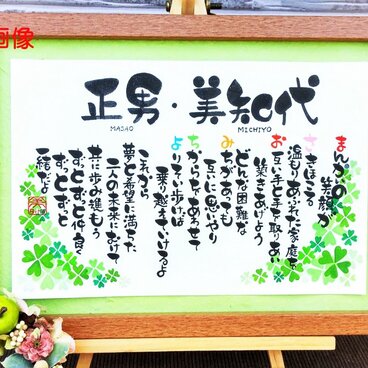 画像
正男・美知代
MASAO MICHIYO
まんかいの
笑顔が
さきほこる
温もりあふれた家庭を
お互い手と手を取りあい
築きあげよう
どんな困難な
みちがあっても
互いに思いやり
ちからをあわせて
よりそい歩けば
乗り越えていけるよ
これから
夢と希望に満ちた
二人の未来にむけて
共に歩み進もう
ずっとずっと仲良く
ずっとずっと
一緒だよ